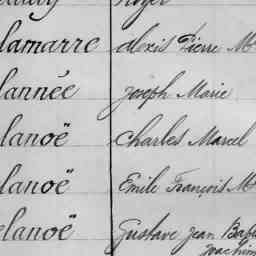 lamarre alexis Pierre M
lannée Joseph Marie
lanoë Charles Marcel
lanoë Emile François M
elanoë Gustave Jean Bap
Joachim